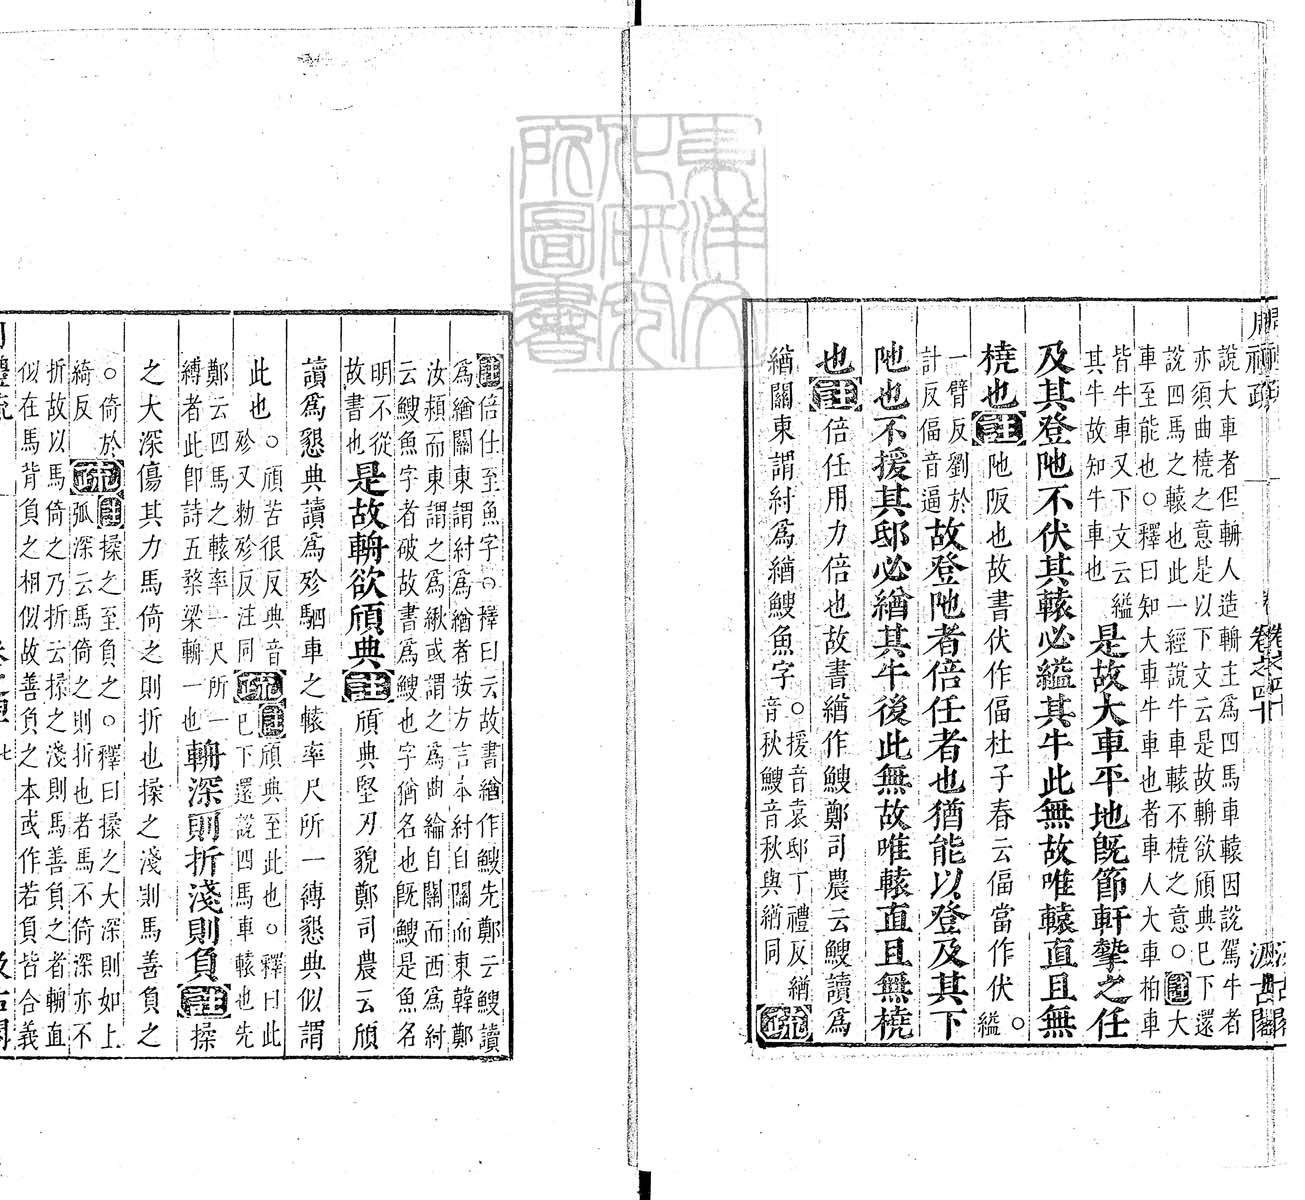 說大車者但輈人造輈主爲四馬車轅因說駕牛者
亦須曲橈之意是以下文云是故輈欲頎典已下還
說四馬之轅也此一經說牛車轅不橈之意○註大
車至能也○釋曰知大車牛車也者車人大車柏車
皆牛車又下文云縊
其牛故知牛車也
是故大車平地既節軒摯之任
及其登阤不伏其轅必縊其牛此無故唯轅直且無
橈也註阤阪也故書伏作偪杜子春云偪當作伏○縊
一臂反劉於
計反偪音逼
故登阤者倍任者也猶能以登及其下
阤也不援其邸必緧其牛後此無故唯轅直且無橈
也註倍任用力倍也故書緧作鰌鄭司農云鰌讀爲
緧關東謂紂爲緧鰌魚字○援音袁邸丁禮反緧
音秋鰌音秋與緧同
疏
註倍任至魚字○釋曰云故書緧作鰌先鄭云鰌讀
爲緧關東謂紂爲緧者按方言車紂自關而東韓鄭
汝潁而東謂之爲緧或謂之爲曲綸自關而西爲紂
云鰌魚字者破故書爲鰌也字猶名也既鰌是魚名
明不從
故書也
是故輈欲頎典註頎典堅刃貌鄭司農云頎
讀爲懇典讀爲殄駟車之轅率尺所一縛懇典似謂
此也○頎苦很反典音
殄又勑殄反注同
疏註頎典至此也○釋曰此
已下還說四馬車轅也先
鄭云四馬之轅率一尺所一
縛者此卽詩五楘梁輈一也
輈深則折淺則負註揉
之大深傷其力馬倚之則折也揉之淺則馬善負之
○倚於
綺反
疏註揉之至負之○釋曰揉之大深則如上
弧深云馬倚之則折也者馬不倚深亦不
折故以馬倚之乃折云揉之淺則馬善負之者輈直
似在馬背負之相似故善負之本或作若負皆合義